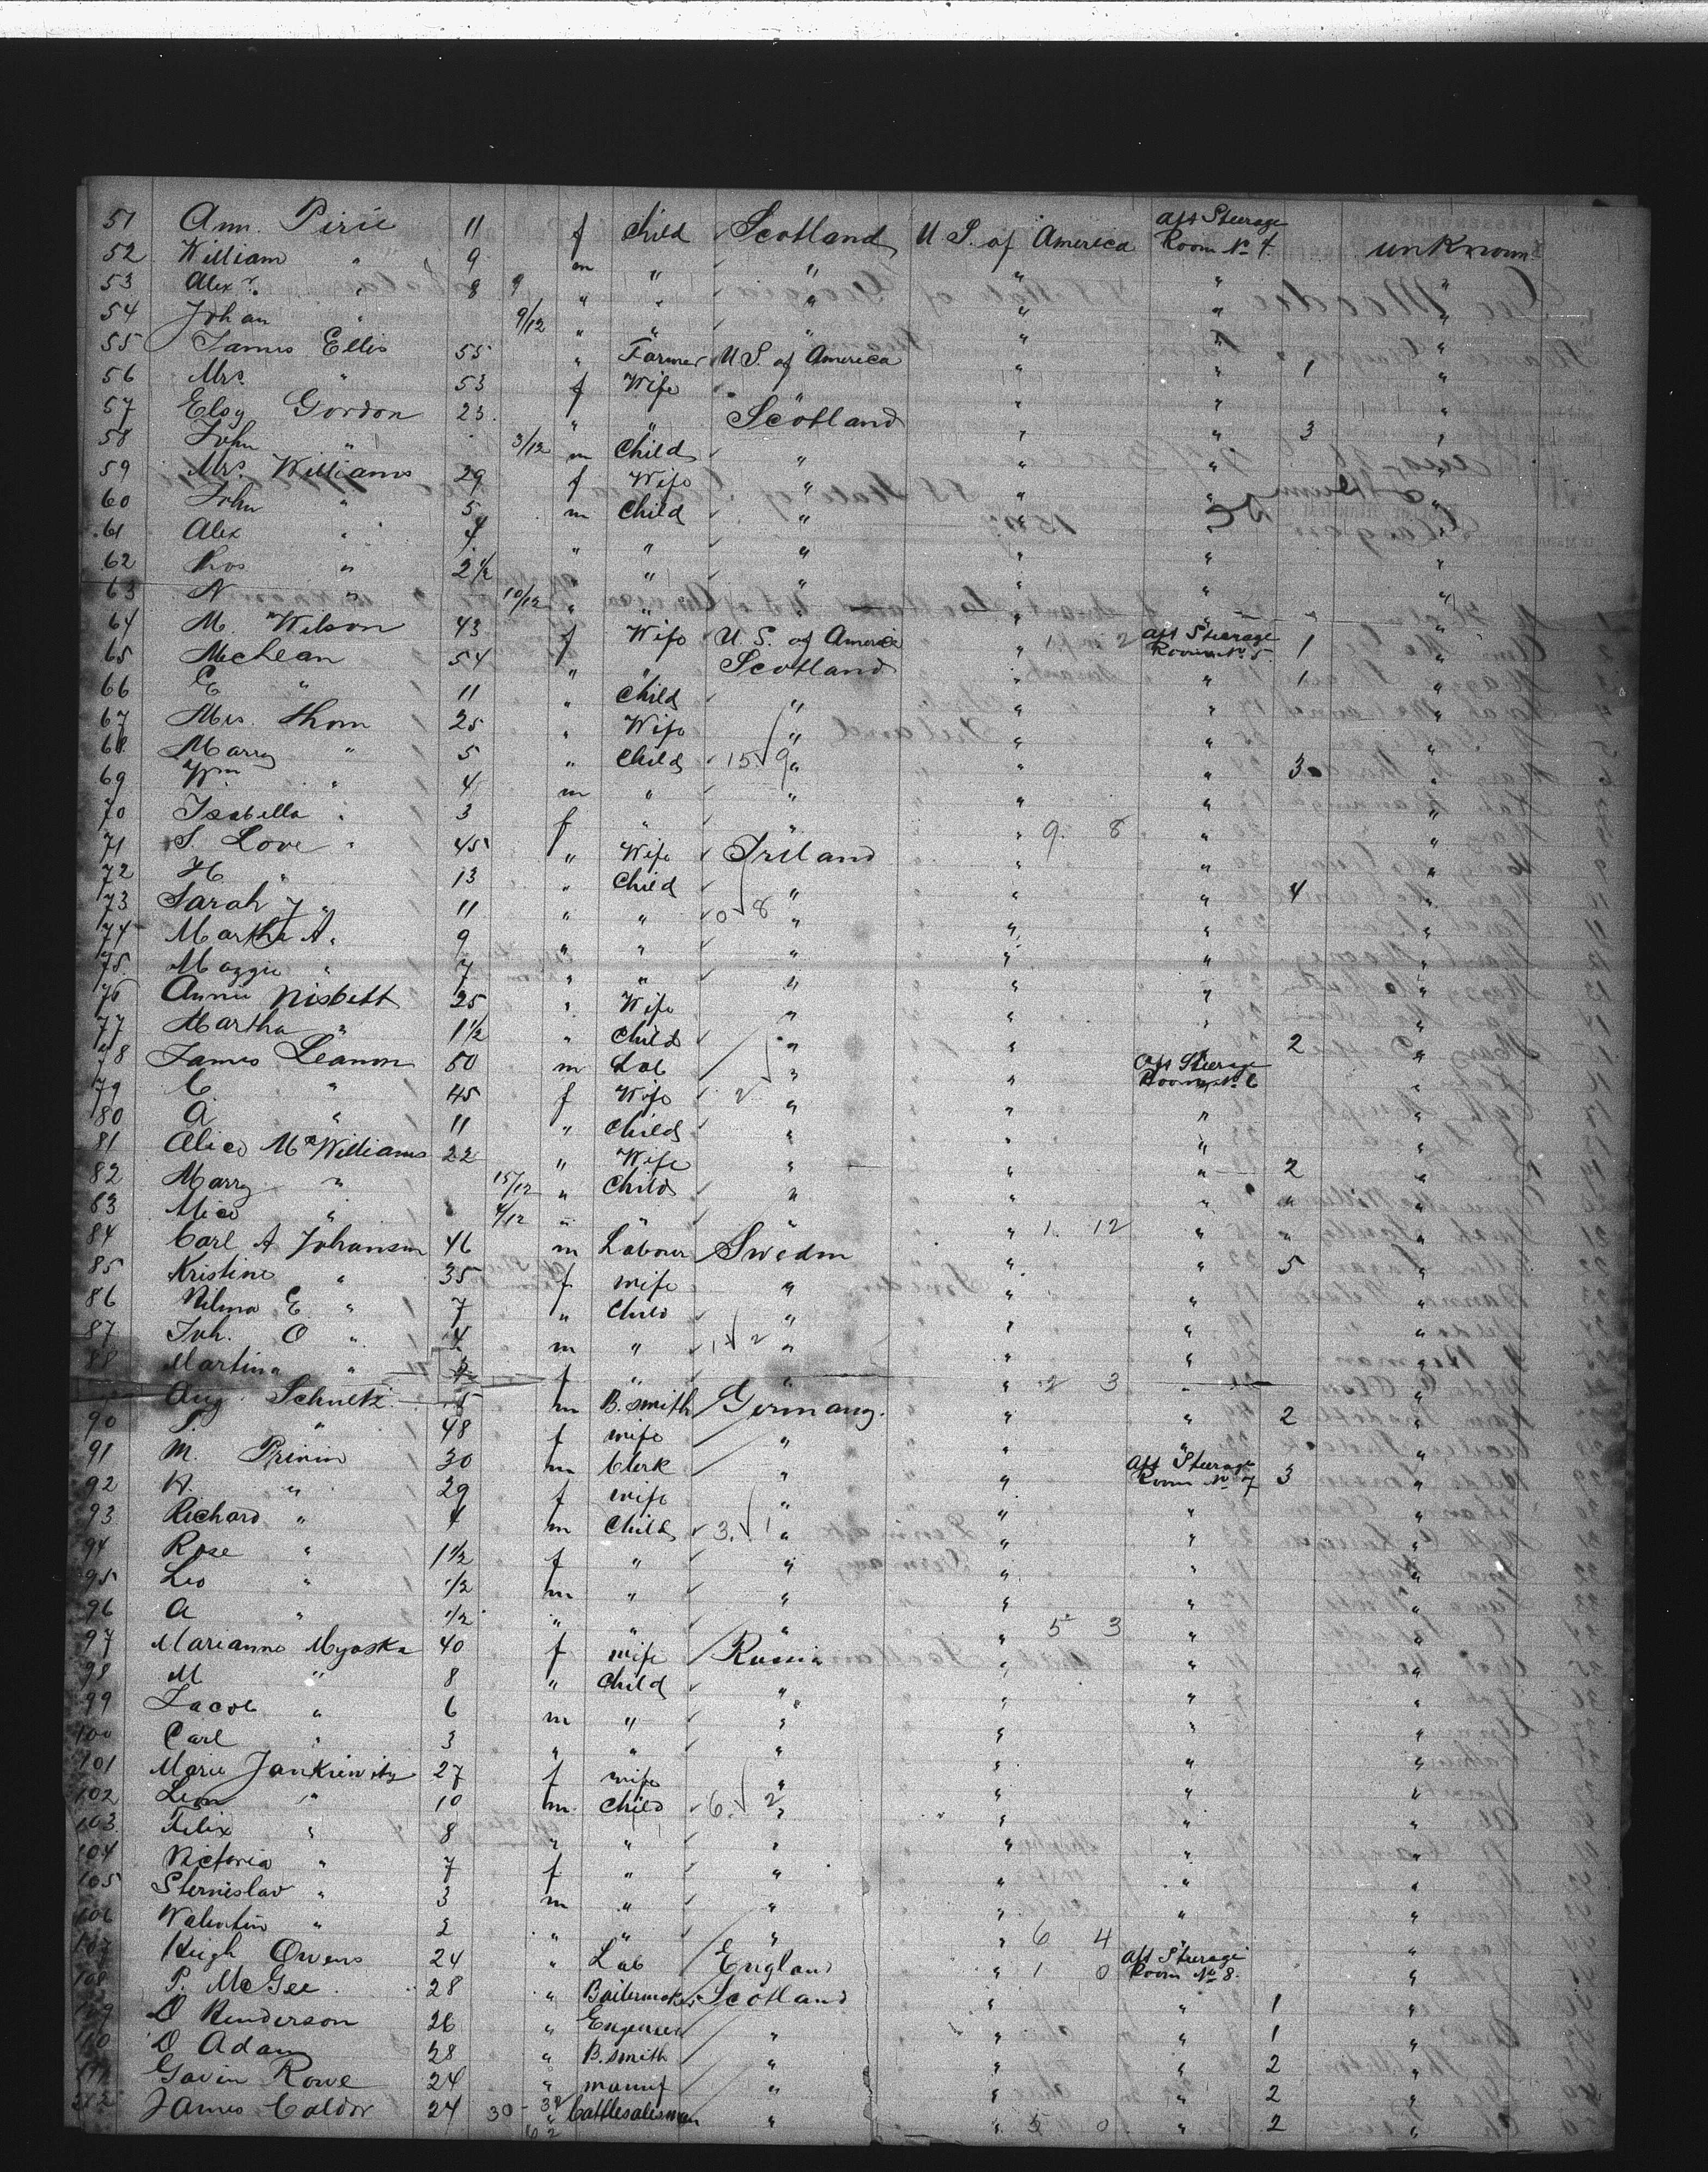 51 Ann. Pirie 11 f Child Scotland U.S. of America Aft Steerage Room No 4. unknown
52 William " 9 m " " " " "
53 Alexr. " 8 9 " " " " " "
54 Johan " 9/12 " " " " " "
55 James Ellis 55 " Farmer U.S. of America " " 1 "
56 Mrs. " 53 f Wife " " " "
57 Elsy Gordon 23 " " Scotland " " 3 "
58 John " 3/12 m Child " " " "
59 Mrs. Williams 29 f Wife " " " "
60 John " 5 m Child " " " "
61 Alex " 4 " " " " " "
62 " 2 1/2 " " " " " "
63 N " 10/12 " " " " " "
64 M. Wilson 43 f Wife U.S. of America " 2 Aft Steerage Room No 5. 1 "
65 McLean 54 " " Scotland " " 1 "
66 C " 11 " Child " " " "
67 Mrs. Thom 25 " Wife " " " "
68 Marry " 5 " Child 15 9 " " " 3 "
69 Wm " 4 m " " " " "
70 Isabella " 3 f " " " 9. 8 " "
71 S. Love " 45 " Wife Ireland " " "
72 H " 13 " Child " " " 4 "
73 Sarah J " 11 " " 0 8 " " " "
74 Martha A. " 9 " " " " " "
75 Maggie " 7 " " " " " "
76 Annie Nisbett 25 " Wife " " " "
77 Martha " 1 1/2 " Child " " " 2 "
78 James Leanon 50 m Lab " " Aft Steerage Room No 6 "
79 C. " 45 f Wife 2 " " " "
80 A " 11 " Child " " " "
81 Alice McWilliams 22 " Wife " " " 2 "
82 Marry " 15/12 " Child " " " " "
83 Alice " /12 " " " " 1. 12 " " "
84 Carl A Johanson 46 m Labour Sweden " " 5 "
85 Kristine " 35 f wife " " " "
86 Vilma E. " 7 " Child " " " "
87 Joh. O " 4 m " 1 2 " " " "
88 Martina " f " " " 2 3 " "
Aug. Schultz m B. smith Germany. " " 2 "
90 " 48 f wife " " " "
91 M. Privin 30 m Clerk " " Aft Steerage Room No 7 3 "
92 " 29 f wife " " " "
93 Richard " 4 m Child 3. 1 " " " "
94 Rose " 1 1/2 f " " " " "
95 Leo " 1/2 m " " " " "
96 A " 1/2 " " " " 5 3 " "
97 Marianne Myoska 40 f wife Russia " " "
98 M " 8 " Child " " " "
99 Jacob " 6 m " " " " "
100 Carl " 3 " " " " " "
101 Marie Jankiewitz 27 f wife " " " "
102 Leon " 10 m. Child 6. 2 " " " "
103 Felix " 8 " " " " " "
104 Victoria " 7 f " " " " "
105 Sternislav " 3 m " " " " "
106 Valentin " 2 " " " " 6 4 " "
107 Hugh Owens 24 " Lab England " 1 0 Aft Steerage Room No 8. "
108 P. McGee 28 " Boilermaker Scotland " " 1 "
109 D Henderson 26 " Engeneer " " " 1 "
110 D Adam 28 " B. smith " " " 2 "
Gavin Rowe 24 " manuf " " " 2 "
James Caldor 24 30 - 32 " Cattlesalesman " " 5 0 " 2 "
62